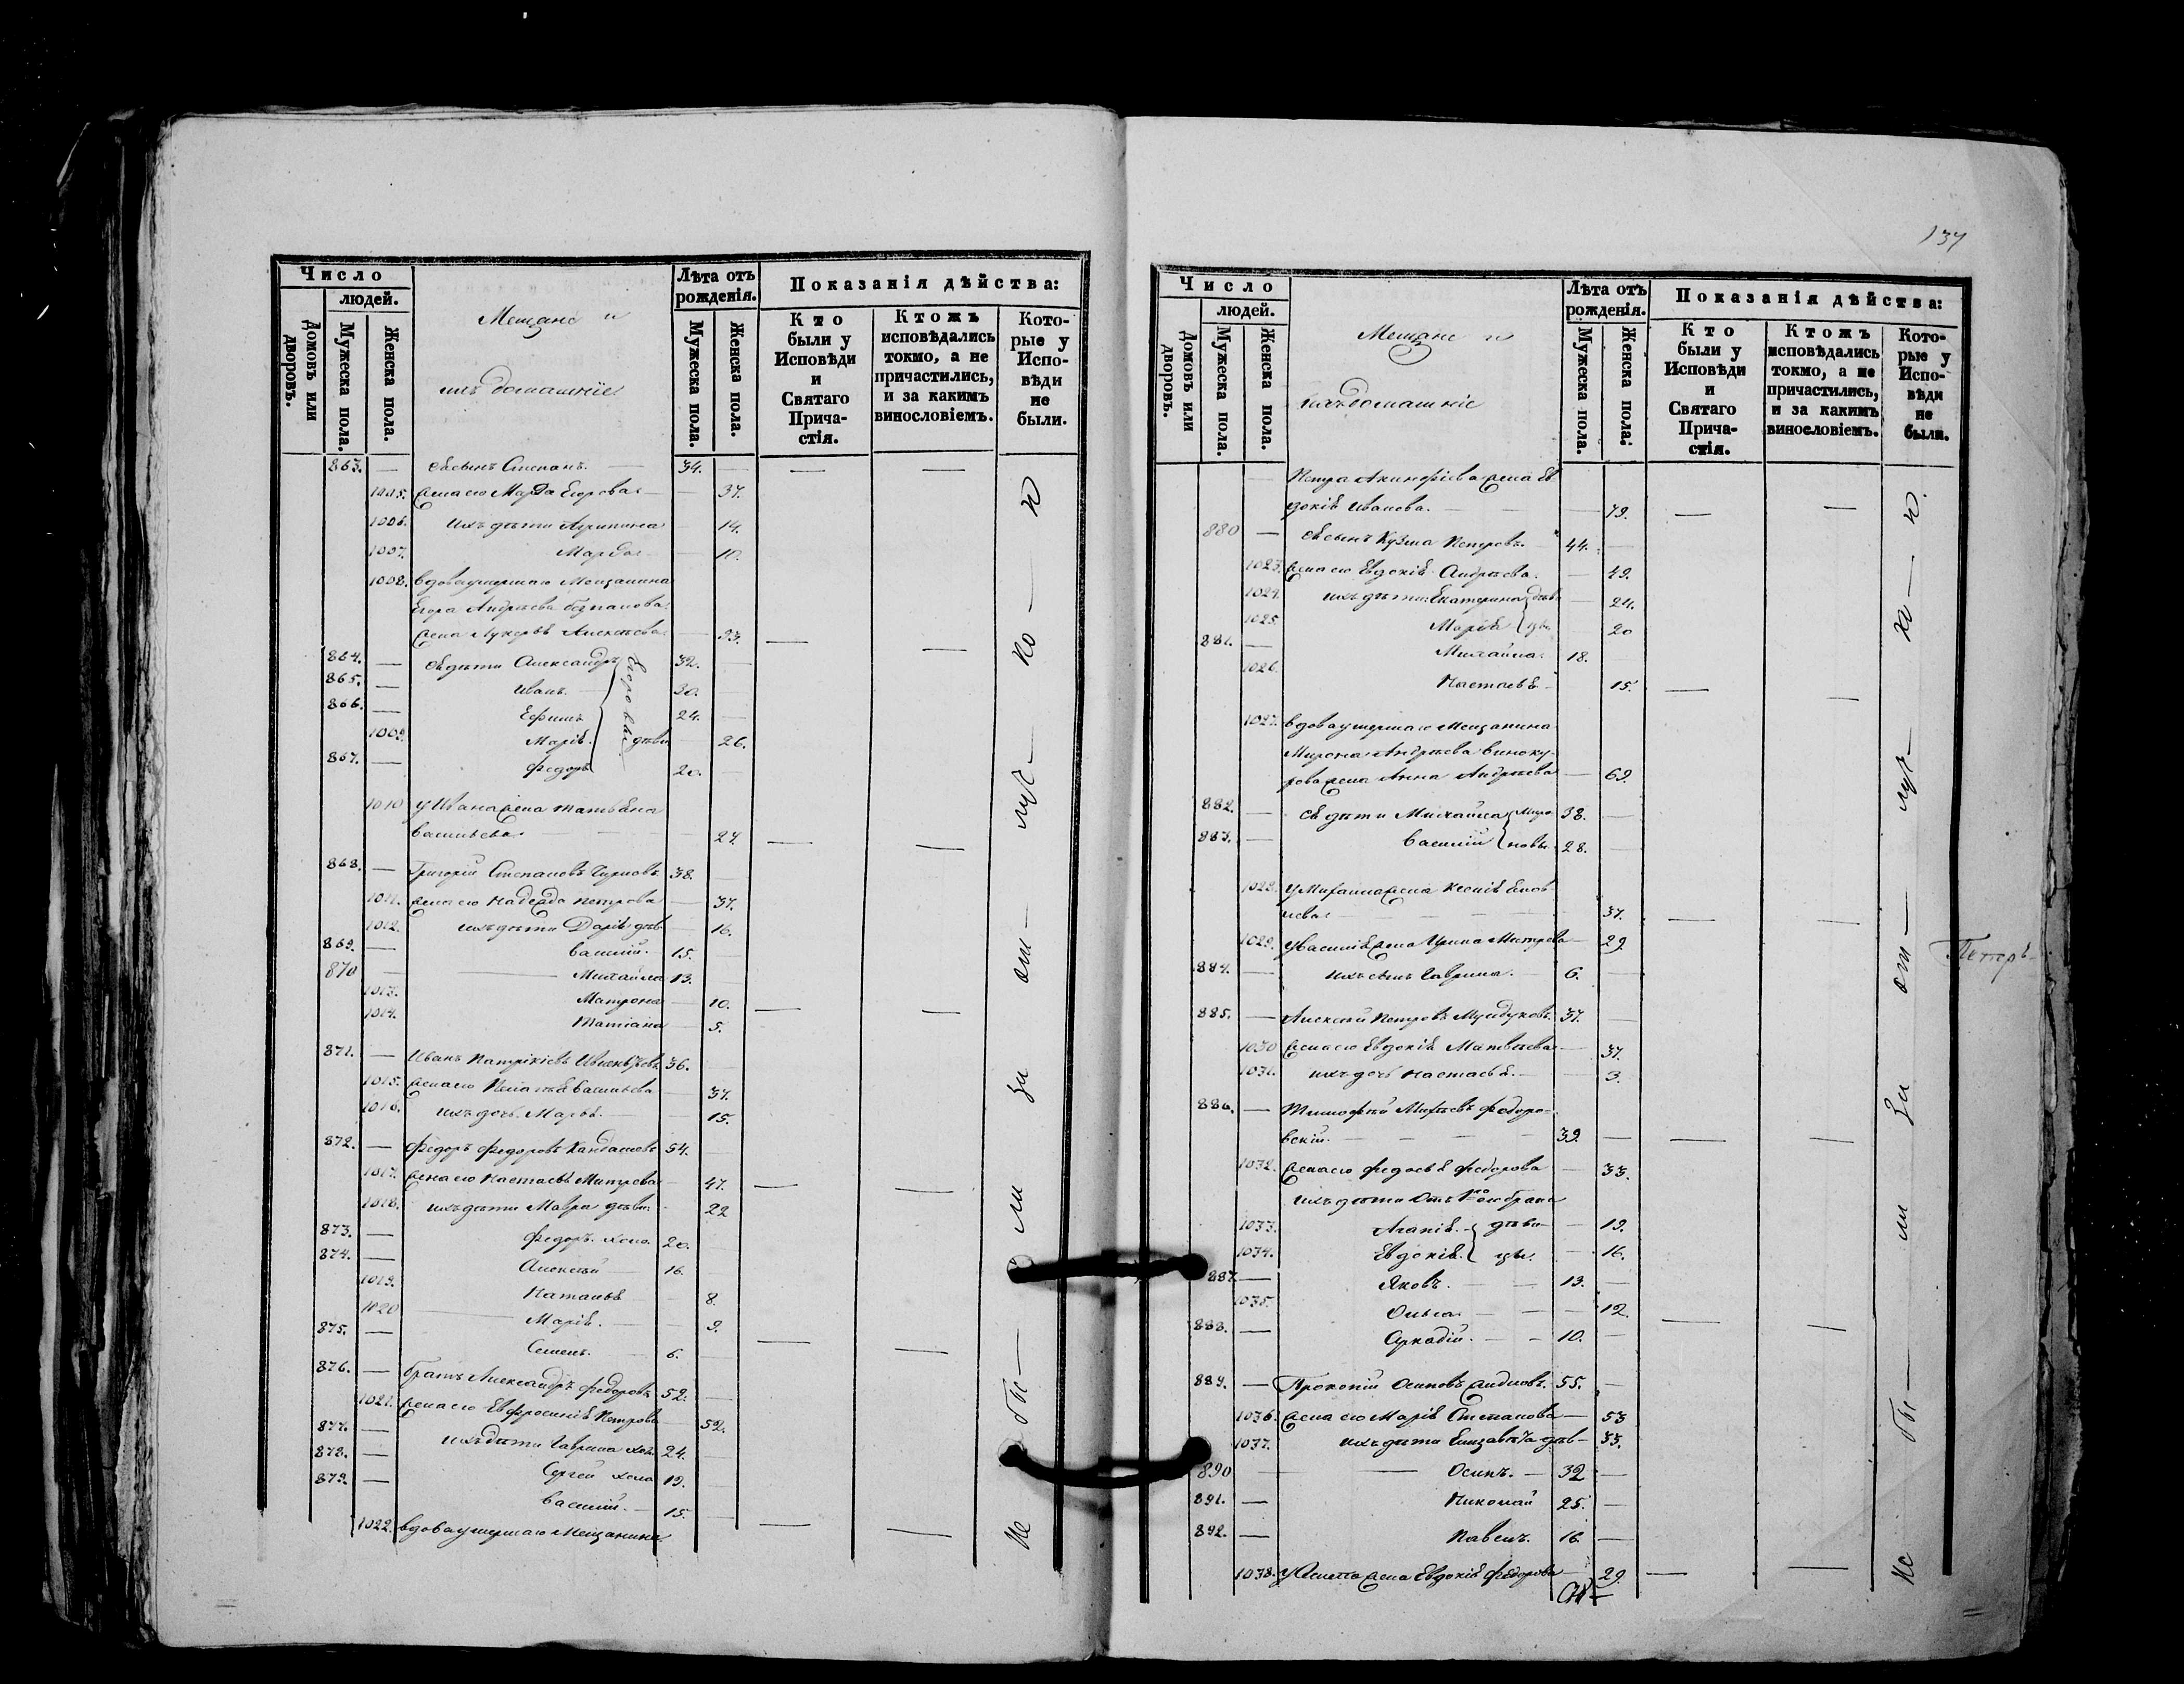 Число
людей.
Домовъ или дворовъ.
Мужеска пола.
Женска пола.
Мещане и
ихъ домашніе
Лѣта отъ рожденія.
Мужеска пола.
Женска пола.
Показанія дѣйства:
Кто были у Исповѣди и Святаго Прича-стія.
Ктожъ исповѣдались токмо, а не причастились, и за какимъ винословіемъ.
Кото-рые у Испо-вѣди не были.
863. — Ея сынъ Степанъ. — 34.
1005. Жена его Марѳа Егорова — 37.
1006. ихъ дѣти Агрипина — 14.
1007. Марѳа — 10.
1008. вдова умершаго Мещанина
Егора Андрѣева
жена Лукерья Алексѣева
864. — Ея дѣти Александръ 32.
865. — Иванъ. 30.
866. — Ефимъ 24.
1009. Марія. дѣви 26.
867. — Федоръ 20.
Егоровы
1010 у Ивана жена Татьяна
Васильева. 27.
868. — Григорій Степановъ 38.
1011. жена его Надежда Петрова — 37.
1012. ихъ дѣти Дарія дѣв — 16.
869. — Василій. 15.
870 — Михайла 13.
1013. Матрона — 10.
1014. Татіана — 5.
871. — Иванъ Патрикіевъ 36.
1015. жена его Пелагія Васильева 37.
1016. ихъ дочь Марья. — 15.
872. — Федоръ Федоровъ Кандашевъ 54.
1017. жена его Настасья Митрева 47.
1018. ихъ дѣти Мавра дѣви. 22
873. — Федоръ. холо. 20.
874. — Алексѣй — 16.
1019. Наталья — 8.
1020 Марія. — 9.
875. — Семенъ. 6.
876. — братъ Александръ Федоровъ 52.
1021. жена его Евфросинія Петрова 52.
877. — ихъ дѣти Гаврила хол. 24.
878. — Сергей холо 19.
879. — Василій. — 15.
1022. вдова умершаго Мещанина
не бы — ли за от — луч — ко — й
137
Число
людей.
Домовъ или дворовъ.
Мужеска пола.
Женска пола.
Мещане и
ихъ домашніе
Лѣта отъ рожденія.
Мужеска пола.
Женска пола.
Показанія дѣйства:
Кто были у Исповѣди и Святаго Прича-стія.
Ктожъ исповѣдались токмо, а не причастились, и за какимъ винословіемъ.
Кото-рые у Испо-вѣди не были.
Петра Акинфіева жена Ев
докія Иванова. — 79.
880 — Ея сынъ Кузма Петровъ. 44.
1023. жена его Евдокія Андрѣева. — 49.
1024. ихъ дѣти: Екатерина дѣв — 24.
1025. Марія цы. — 20
881. — Михайла. 18.
1026. Настасья — 15.
1027. вдова умершаго Мещанина
Мирона Андрѣева Виноку
рова жена Анна Андрѣева — 69.
882. — Ея дѣти Михайла Миро 38.
883. — Василій новы. 28.
1028. у Михаила жена Ксенія Яков
лева — 37.
1029. у Василія жена Ирина Митрева — 29
884. — ихъ сынъ Гаврила. — 6.
885. — Алексѣй Петровъ 37.
1030 жена его Евдокія Матвѣева — 37.
1031. ихъ дочь Настасья. — 3.
886. — Тимофѣй Михѣевъ Федоро-
вскій. — 39.
1032. жена его Федосья Федорова — 33.
ихъ дѣти отъ 1го брака
1033. Агапія. дѣви — 19.
1034. Евдокія. цы. — 16.
887. — Яковъ. — 13.
1035. Ольга — 12.
888. — Аркадій. — 10.
889. — Прокопій Осиповъ 55.
1036. жена его Марія Степанова — 53
1037. ихъ дѣти Елизавета дѣв — 33.
890 — Осипъ. — 32
891. — Николай 25.
892. — Павелъ. 16.
1038. у Осипа жена Евдокія Федорова — 29.
не бы — ли за от — луч — ко — й.
Петръ